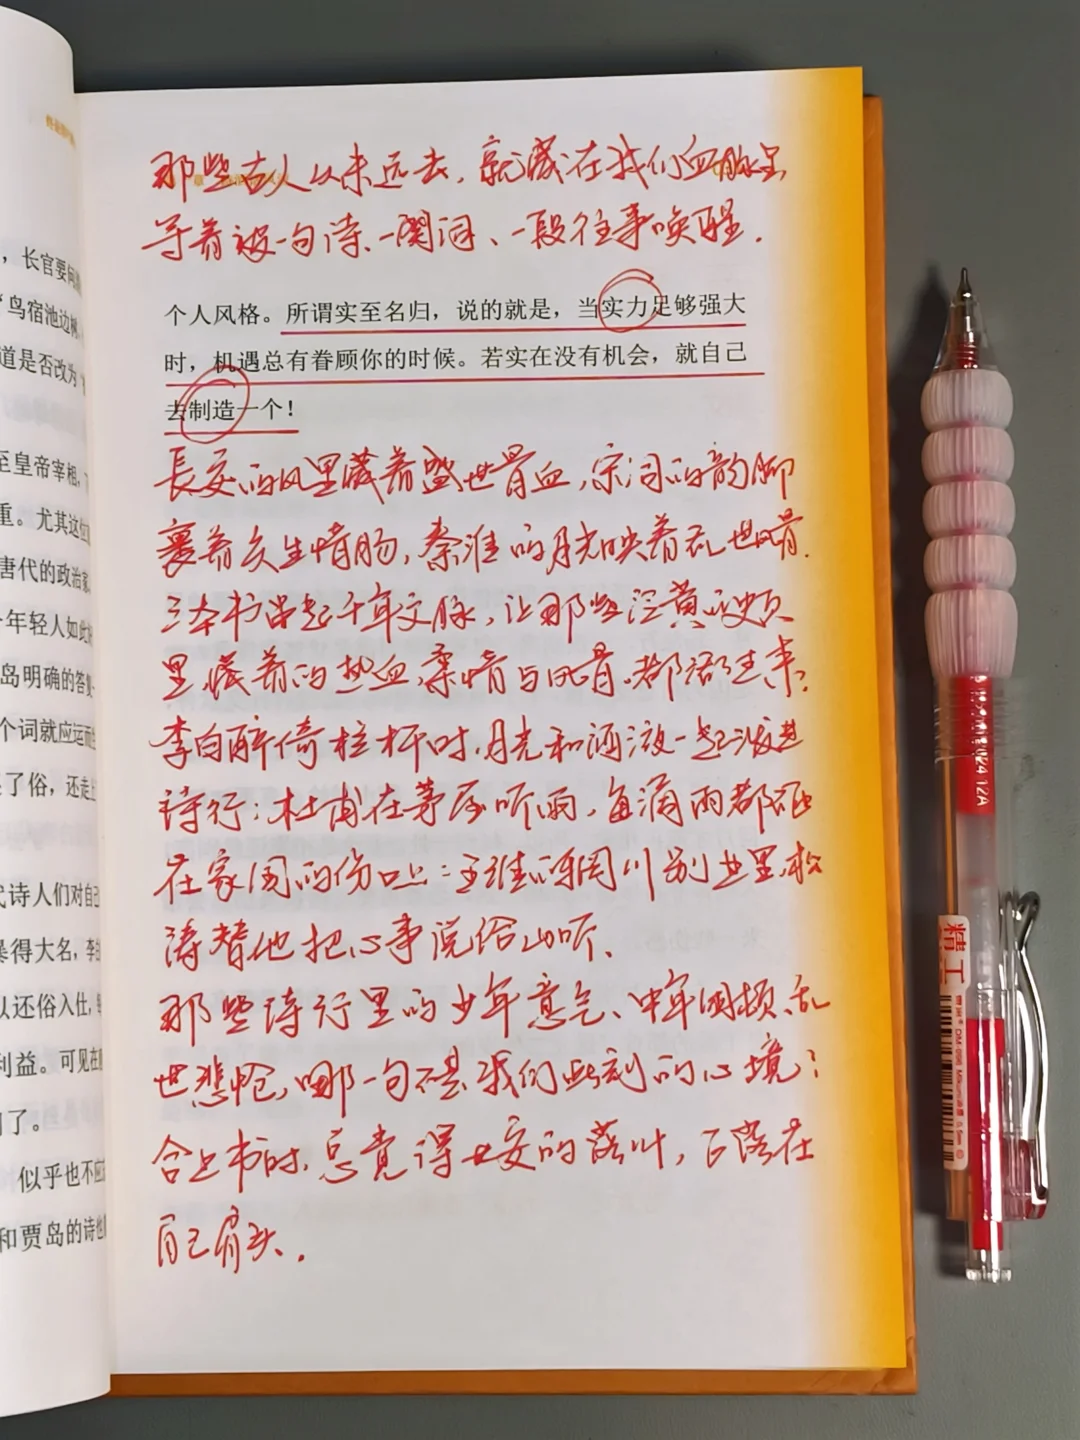 那些古人从未远去，就藏在我们血脉里
等着被一句诗、一阕词、一段往事唤醒.
个人风格。所谓实至名归，说的就是，当实力足够强大
时，机遇总有眷顾你的时候。若实在没有机会，就自己
去制造一个！
長安的风里藏着盛世骨血,宋词的韵脚
裹着众生情肠,秦淮的月光映着乱世风骨.
三本书串起千年文脉,让那些泛黄的史页
里,藏着的热血,柔情与风骨.都活过来;
李白醉倚栏杆时,月光和酒液一起泼进
诗行;杜甫在茅屋听雨,每滴雨都砸
在家国的伤口上;王维的辋川别业里,松
涛替他把心事说给山听.
那些诗行里的少年意气、中年困顿、乱
世悲怆,哪一句不是我们此刻的心境?
合上书时,总觉得长安的落叶,已落在
自己肩头.
，长官要问
“鸟宿池边树，
道是否改为“
至皇帝宰相，
重。尤其这
唐代的政治家
年轻人如此
岛明确的答
个词就应运而
了俗，还走上
代诗人们对自己
暴得大名，李
以还俗入仕，
利益。可见在
了。
似乎也不应
和贾岛的诗也
2024 12A
精工
DM-096 0.5mm